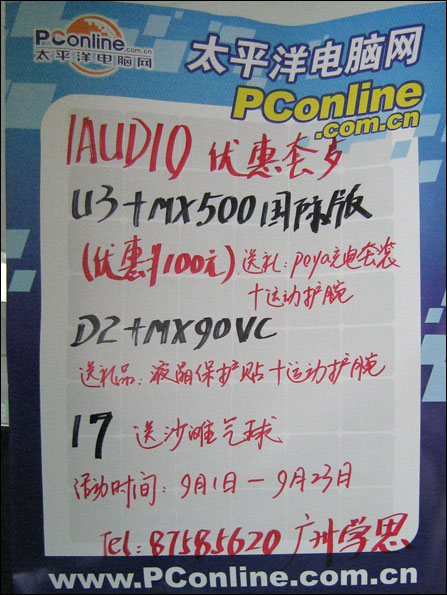 PConline
.com.cn
太平洋电脑网
太平洋电脑网
PConline
.com.cn
IAUDIO 优惠套
U3+MX500国际版
(优惠100元) 送礼: poya充电套装
+运动护腕
D2+MX90VC
送礼品: 液晶保护贴+运动护腕
i7 送沙滩气球
活动时间: 9月1日-9月23日
Tel: 87585620 广州学思
www.PConline.com.cn